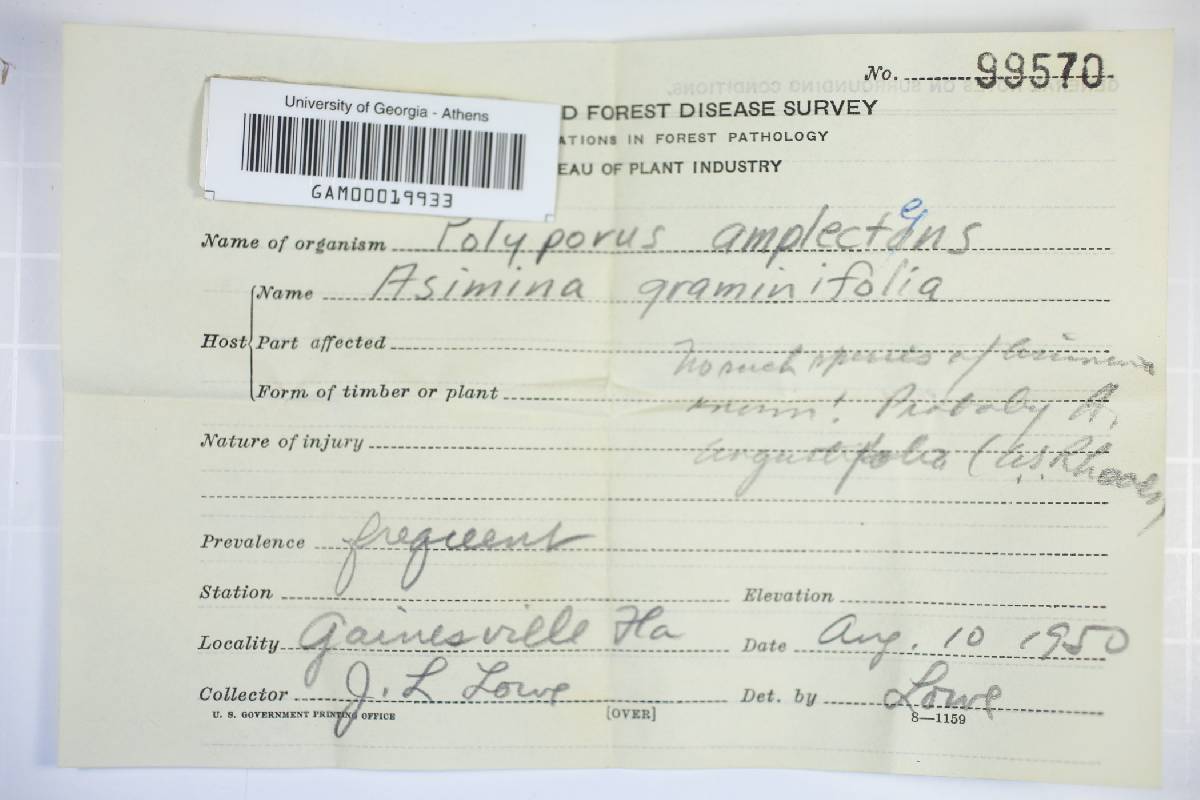 No. 99570
University of Georgia - Athens
GAM00019933
D FOREST DISEASE SURVEY
ATIONS IN FOREST PATHOLOGY
EAU OF PLANT INDUSTRY
Name of organism Polyporus amplectens
Host
Name Asimina graminifolia
Part affected
No such species of Asimina
Form of timber or plant
Probably A.
Nature of injury
angustifolia (AS Rhoads)
Prevalence frequent
Station Elevation
Locality Gainesville Fla Date Aug. 10 1950
Collector J. L Lowe Det. by Lowe
U. S. GOVERNMENT PRINTING OFFICE [OVER] 8—1159
GENERAL NOTES ON SURROUNDING CONDITIONS.